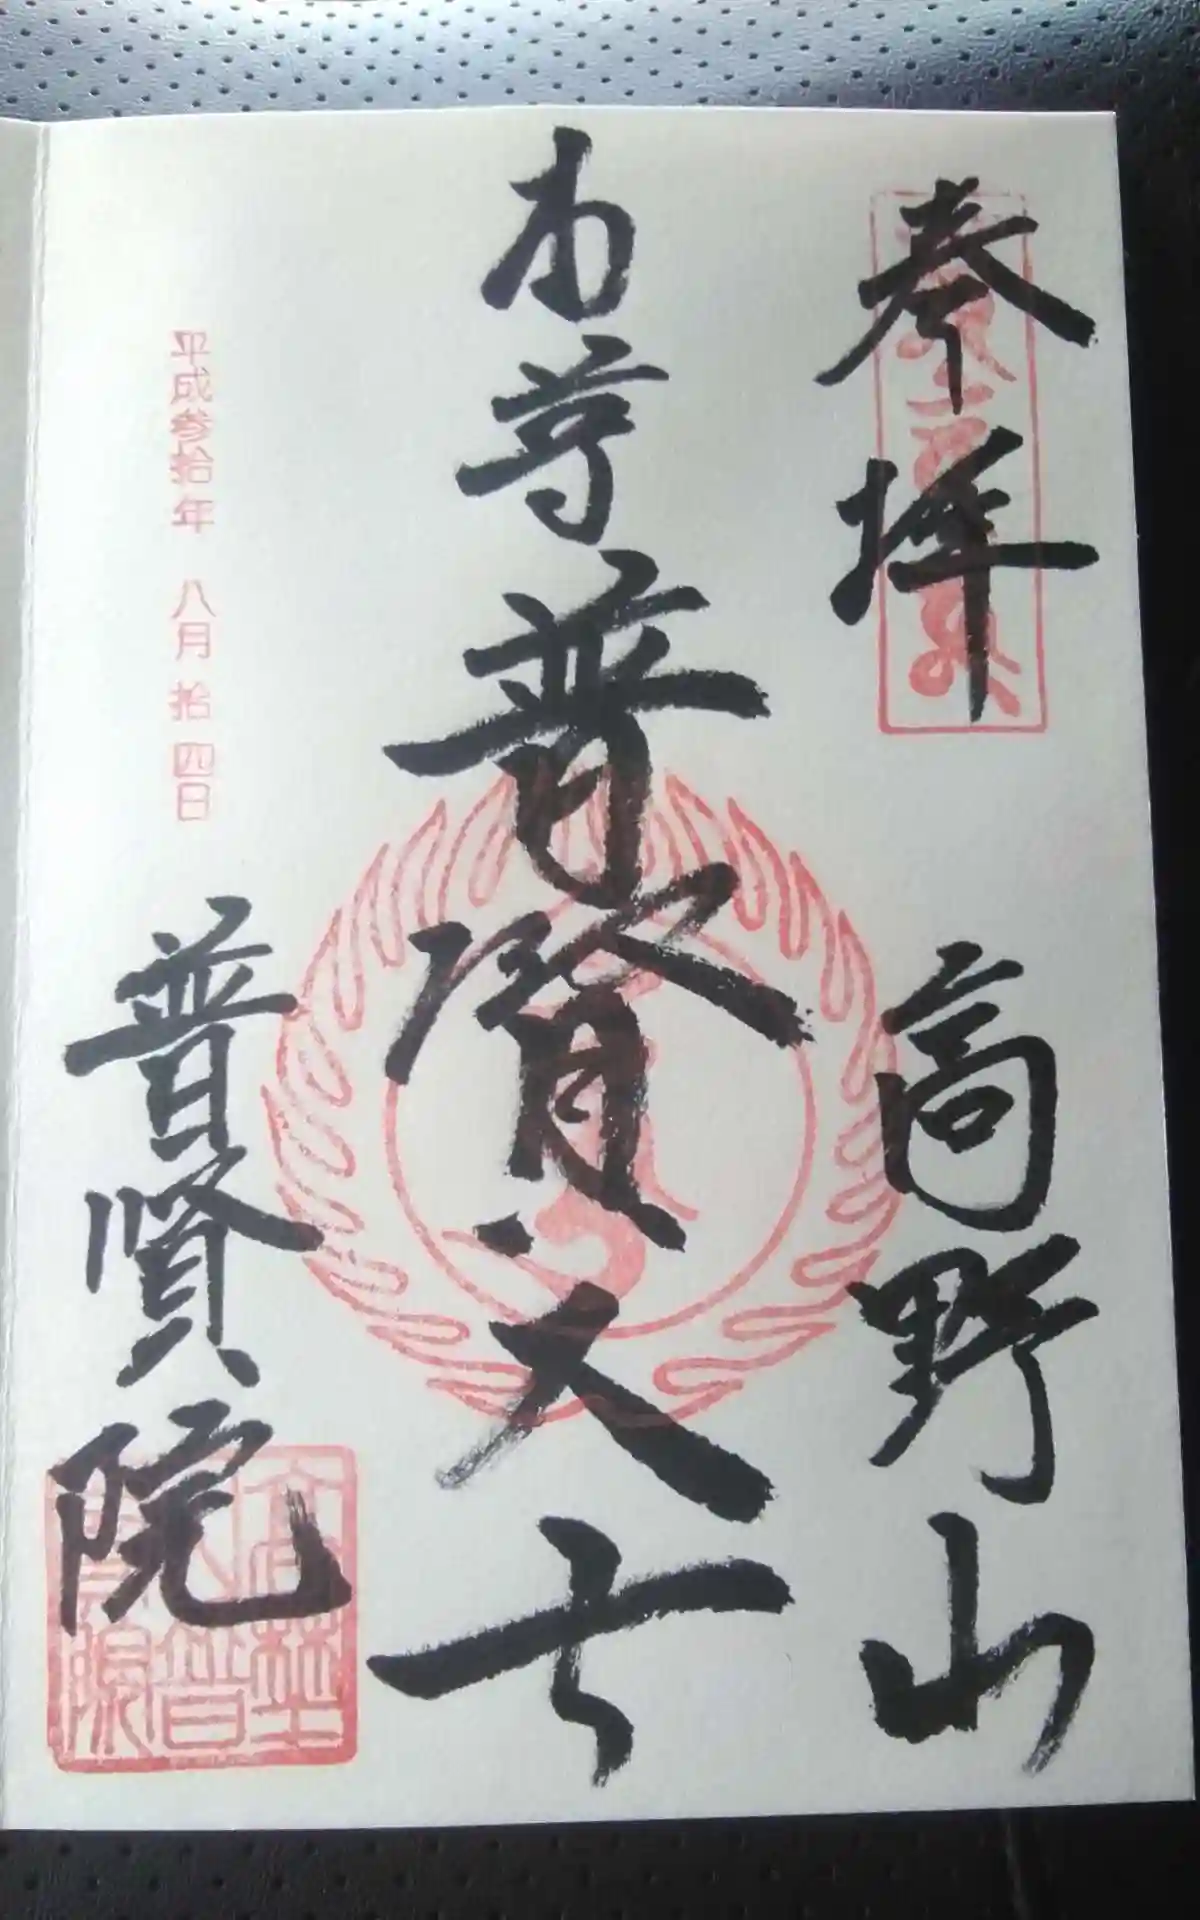 奉拝
高野山
本尊
普賢大士
平成参拾年 八月拾四日
普賢院